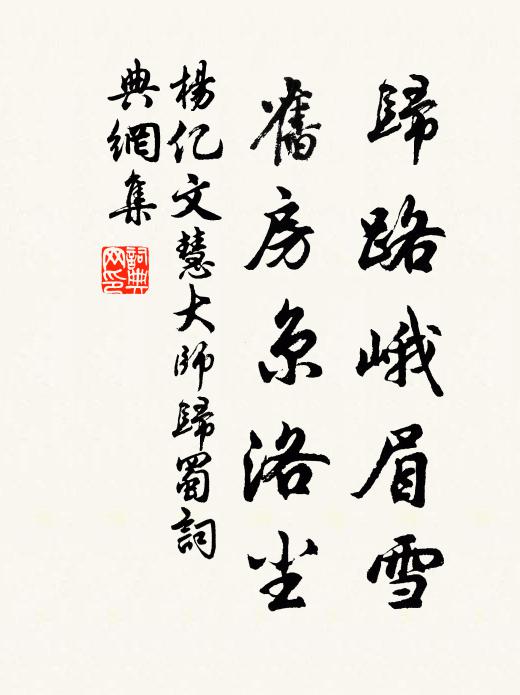 歸路峨眉雪
舊房京洛尘
楊亿文慧大师歸蜀詞
典網集
詞典
网印